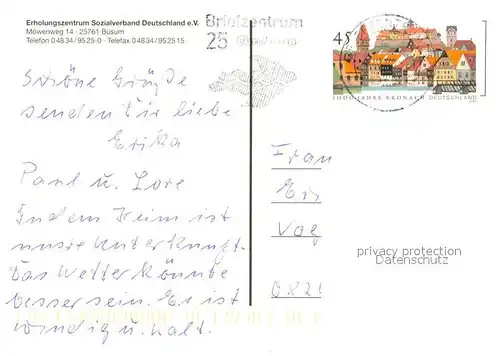 Erholungszentrum Sozialverband Deutschland e.V.
Möwenweg 14 · 25761 Büsum
Telefon 04834/9525-0 · Telefax 04834/952515
Briefzentrum
25
45
1000 JAHRE KRONACH DEUTSCHLAND
Schöne Grüße
senden Dir liebe
Erika
Paul u. Lore
In dem Heim ist
unsre Unterkunft.
Das Wetter könnte
besser sein. Es ist
windig u. kalt.
Frau
privacy protection
Datenschutz